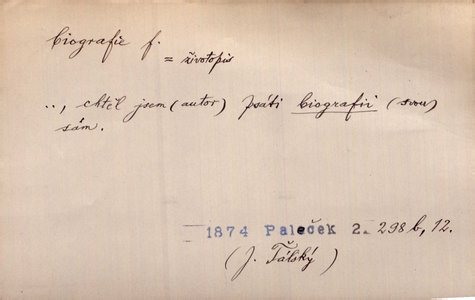 biografie f.
= životopis
.., chtěl jsem (autor) psáti biografii (svou)
sám.
1874 Paleček 2. 298 b, 12.
(J. Tálský)